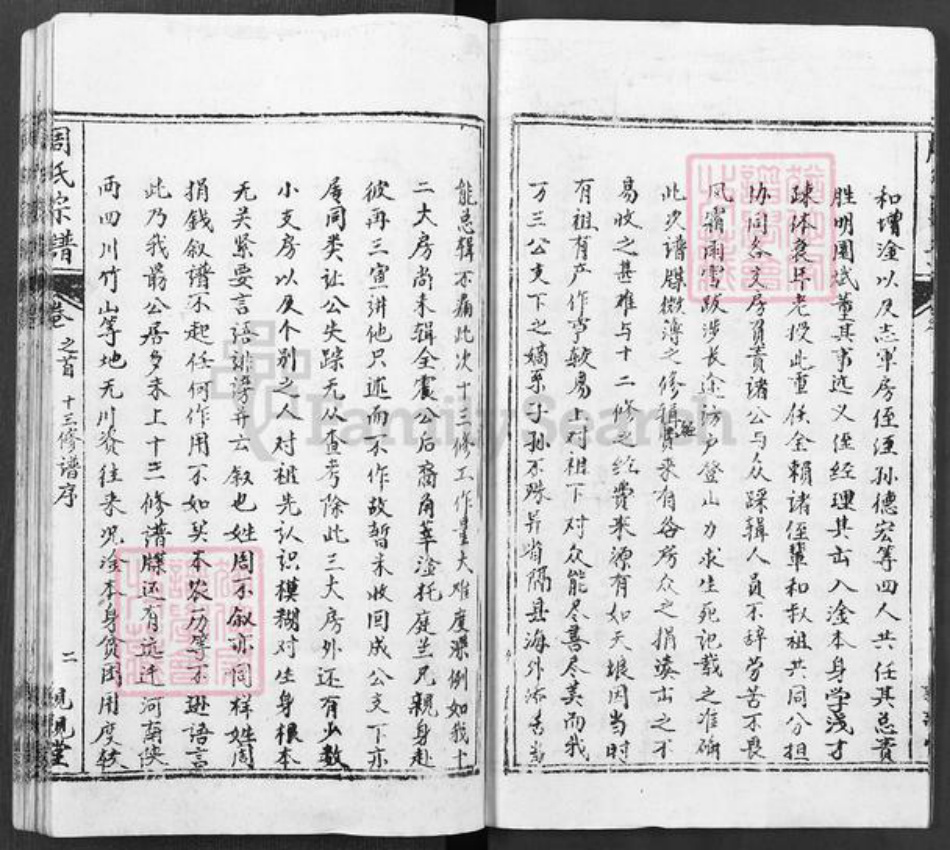 和增淦以及志軍房侄侄孙德宏等四人共任其总责
胜明国斌董其事选义侄经理其出入淦本身学浅才
疎体衰年老授此重任全賴诸侄輩和叔祖共同分担
协同各支房負責诸公与众踩辑人员不辞劳苦不畏
风霜雨雪跋涉长途访户登山力求生死记载之准确
此次谱牒微薄之修稱费来有各房众之捐凑出之不
易收之甚难与十二修之经费来源有如天壤因当时
有祖有产作事較易上对祖下对众能尽善尽美而我
万三公支下之嫡系子孙不殊异省隔县海外添丁当
能总辑不漏此次十三修工作量大难度深例如我十
二大房尚未辑全震公后裔角莘淦托庭兰兄親身赴
彼再三宣讲他只述而不作故暂未收回成公支下亦
居同类让公失踪无从查考除此三大房外还有少数
小支房以及个别之人对祖先认识模糊对生身根本
无关紧要言语誹谤并云叙也姓周不叙亦同样姓周
捐錢叙谱不起任何作用不如买本农历等不逊语言
此乃我最公居多来上十二修谱牒还有远迁河南陕
西四川竹山等地无川资往来况淦本身贫困用度较
周氏宗譜
卷之首
十三修谱序
二
覌覌堂
FamilySearch